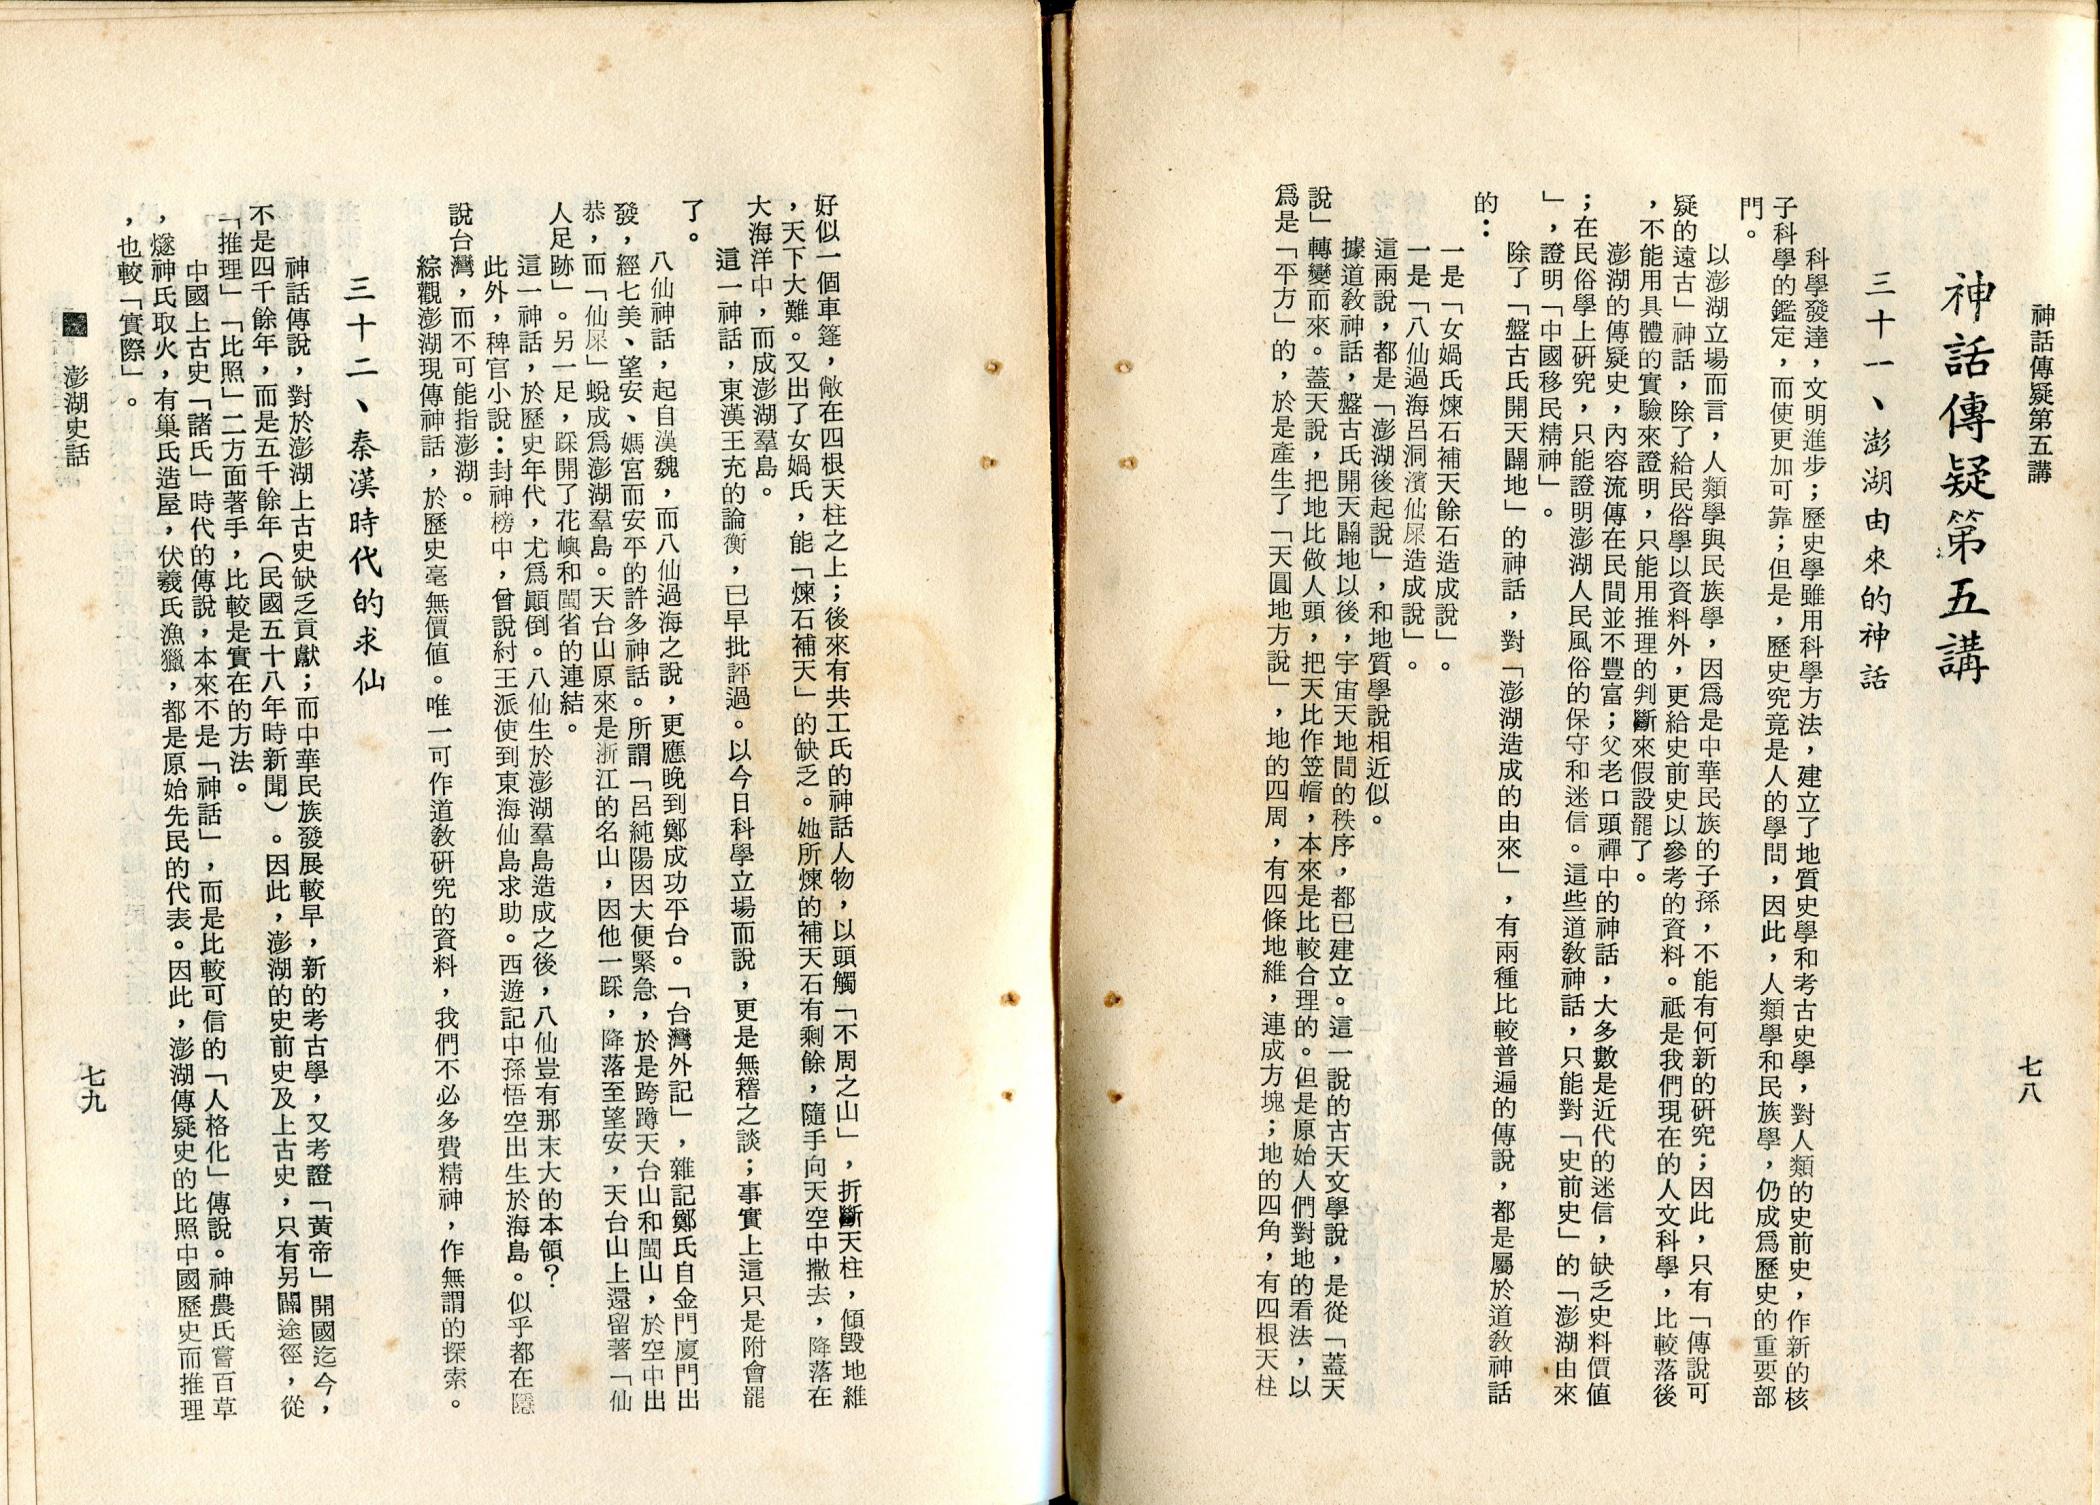 神話傳疑第五講
七八
神話傳疑第五講
三十一、澎湖由來的神話
科學發達，文明進步；歷史學雖用科學方法，建立了地質史學和考古史學，對人類的史前史，作新的核
子科學的鑑定，而使更加可靠；但是，歷史究竟是人的學問，因此，人類學和民族學，仍成爲歷史的重要部
門。
以澎湖立場而言，人類學與民族學，因爲是中華民族的子孫，不能有何新的研究；因此，只有「傳說可
疑的遠古」神話，除了給民俗學以資料外，更給史前史以參考的資料。祇是我們現在的人文科學，比較落後
，不能用具體的實驗來證明，只能用推理的判斷來假設罷了。
澎湖的傳疑史，內容流傳在民間並不豐富；父老口頭禪中的神話，大多數是近代的迷信，缺乏史料價值
；在民俗學上研究，只能證明澎湖人民風俗的保守和迷信。這些道教神話，只能對「史前史」的「澎湖由來
」，證明「中國移民精神」。
除了「盤古氏開天闢地」的神話，對「澎湖造成的由來」，有兩種比較普遍的傳說，都是屬於道教神話
的：
一是「女媧氏煉石補天餘石造成說」。
一是「八仙過海呂洞濱仙屎造成說」。
這兩說，都是「澎湖後起說」，和地質學說相近似。
據道教神話，盤古氏開天闢地以後，宇宙天地間的秩序，都已建立。這一說的古天文學說，是從「蓋天
說」轉變而來。蓋天說，把地比做人頭，把天比作笠帽，本來是比較合理的。但是原始人們對地的看法，以
爲是「平方」的，於是產生了「天圓地方說」，地的四周，有四條地維，連成方塊；地的四角，有四根天柱
好似一個車篷，敞在四根天柱之上；後來有共工氏的神話人物，以頭觸「不周之山」，折斷天柱，傾毀地維
，天下大難。又出了女媧氏，能「煉石補天」的缺乏。她所煉的補天石有剩餘，隨手向天空中撒去，降落在
大海洋中，而成澎湖羣島。
這一神話，東漢王充的論衡，已早批評過。以今日科學立場而說，更是無稽之談；事實上這只是附會罷
了。
八仙神話，起自漢魏，而八仙過海之說，更應晚到鄭成功平台。「台灣外記」，雜記鄭氏自金門廈門出
發，經七美、望安、媽宮而安平的許多神話。所謂「呂純陽因大便緊急，於是跨蹲天台山和閩山，於空中出
恭，而「仙屎」蛻成爲澎湖羣島。天台山原來是浙江的名山，因他一踩，降落至望安，天台山上還留著「仙
人足跡」。另一足，踩開了花嶼和閩省的連結。
這一神話，於歷史年代，尤爲顚倒。八仙生於澎湖羣島造成之後，八仙豈有那末大的本領？
此外，稗官小說：封神榜中，曾說紂王派使到東海仙島求助。西遊記中孫悟空出生於海島。似乎都在隱
說台灣，而不可能指澎湖。
綜觀澎湖現傳神話，於歷史毫無價值。唯一可作道教研究的資料，我們不必多費精神，作無謂的探索。
三十二、秦漢時代的求仙
神話傳說，對於澎湖上古史缺乏貢獻；而中華民族發展較早，新的考古學，又考證「黃帝」開國迄今，
不是四千餘年，而是五千餘年（民國五十八年時新聞）。因此，澎湖的史前史及上古史，只有另闢途徑，從
「推理」「比照」二方面著手，比較是實在的方法。
中國上古史「諸氏」時代的傳說，本來不是「神話」，而是比較可信的「人格化」傳說。神農氏嘗百草
，燧神氏取火，有巢氏造屋，伏羲氏漁獵，都是原始先民的代表。因此，澎湖傳疑史的比照中國歷史而推理
，也較「實際」。
澎湖史話
七九